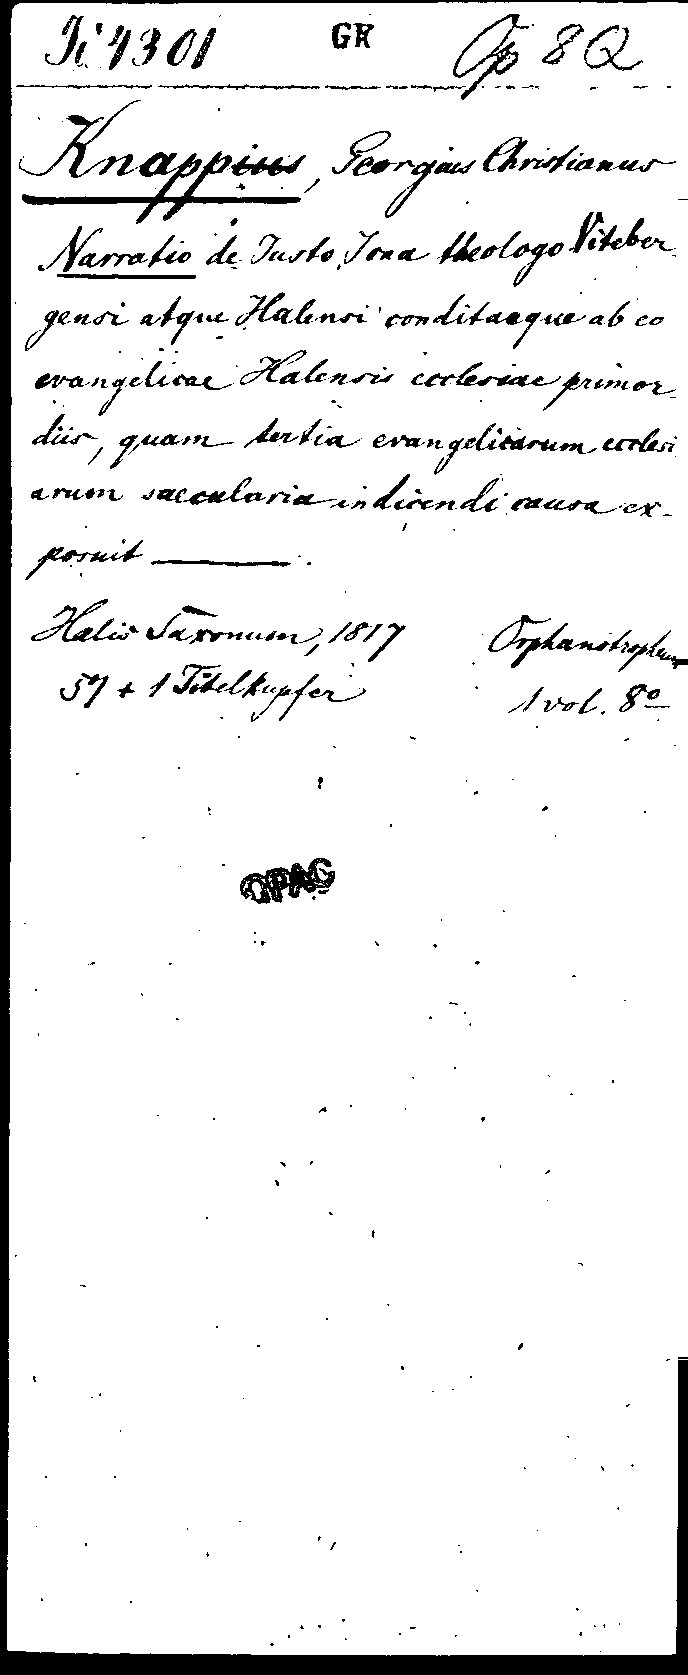 Ji 4301 GK Op 8 Q
Knappius, Georgius Christianus
Narratio de Justo Jona theologo Viteber
gensi atque Halensi conditaeque ab eo
evangelicae Halensis ecclesiae primor
diis, quam tertia evangelicarum ecclesi
arum saecularia indicendi causa ex-
posuit ———.
Halis Saxonum, 1817 Orphanotropheum
57 + 1 Titelkupfer 1 vol. 8º
OPAC